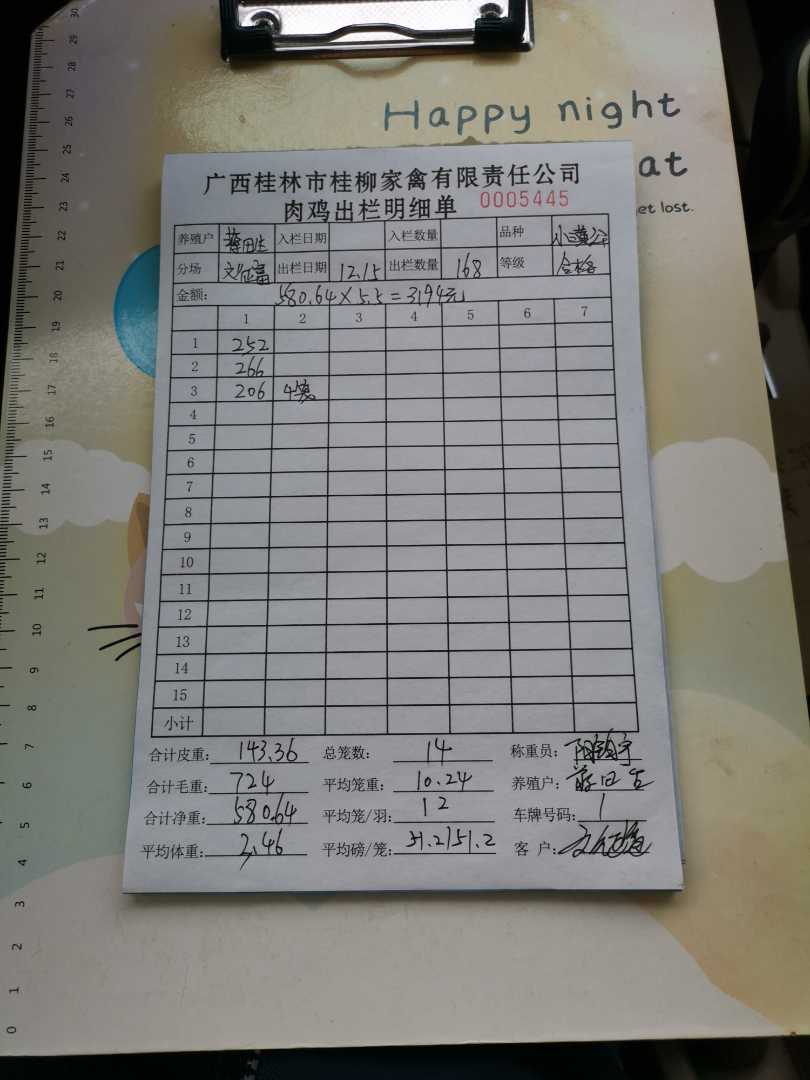 Happy night
at
et lost.
广西桂林市桂柳家禽有限责任公司
肉鸡出栏明细单 0005445
养殖户 入栏日期 入栏数量 品种
分场 出栏日期 12.15 出栏数量 168 等级 合格
金额: 580.64×5.5=3194元
1 2 3 4 5 6 7
1 252
2 266
3 206
4
5
6
7
8
9
10
11
12
13
14
15
小计
合计皮重: 143.36 总笼数: 14 称重员:
合计毛重: 724 平均笼重: 10.24 养殖户:
合计净重: 580.64 平均笼/羽: 12 车牌号码: 1
平均体重: 3.46 平均磅/笼: 51.2/51.2 客 户:
0 1 2 3 4 5 6 7 8 9 10 11 12 13 14 15 16 17 18 19 20 21 22 23 24 25 26 27 28 29 30